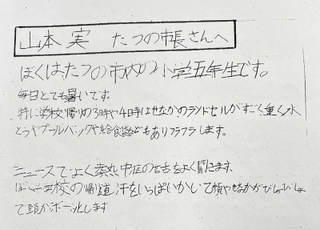 山本 実 たつの市長さんへ
ぼくはたつの市内の小学五年生です。
毎日とても暑いです。
特に学校帰りの3時や4時はせなかのランドセルがすごく重く水
とうやプールバックや給食袋ともありフラフラします。
ニュースでよく熱中症の言古をよく聞きます。
ぼくも学校の帰り道汗をいっぱいかいて顔やせなかがびしょびしょ
で頭がボーッとします